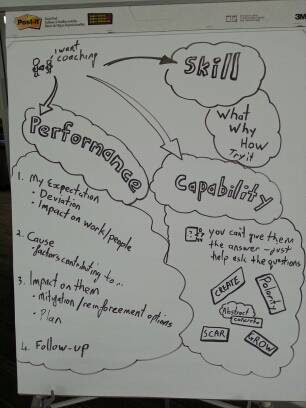 Post-it
3M
I want
coaching
Skill
What
Why
How
Try it
Performance
Capability
1. My Expectation
• Deviation
• Impact on work/people
2. Cause
• factors contributing to...
3. Impact on them
• Mitigation/reinforcement options
• Plan
4. Follow-up
you can't give them
the answer - just
help ask the questions
CREATE
Polarity
Abstract
concrete
SCAR
GROW